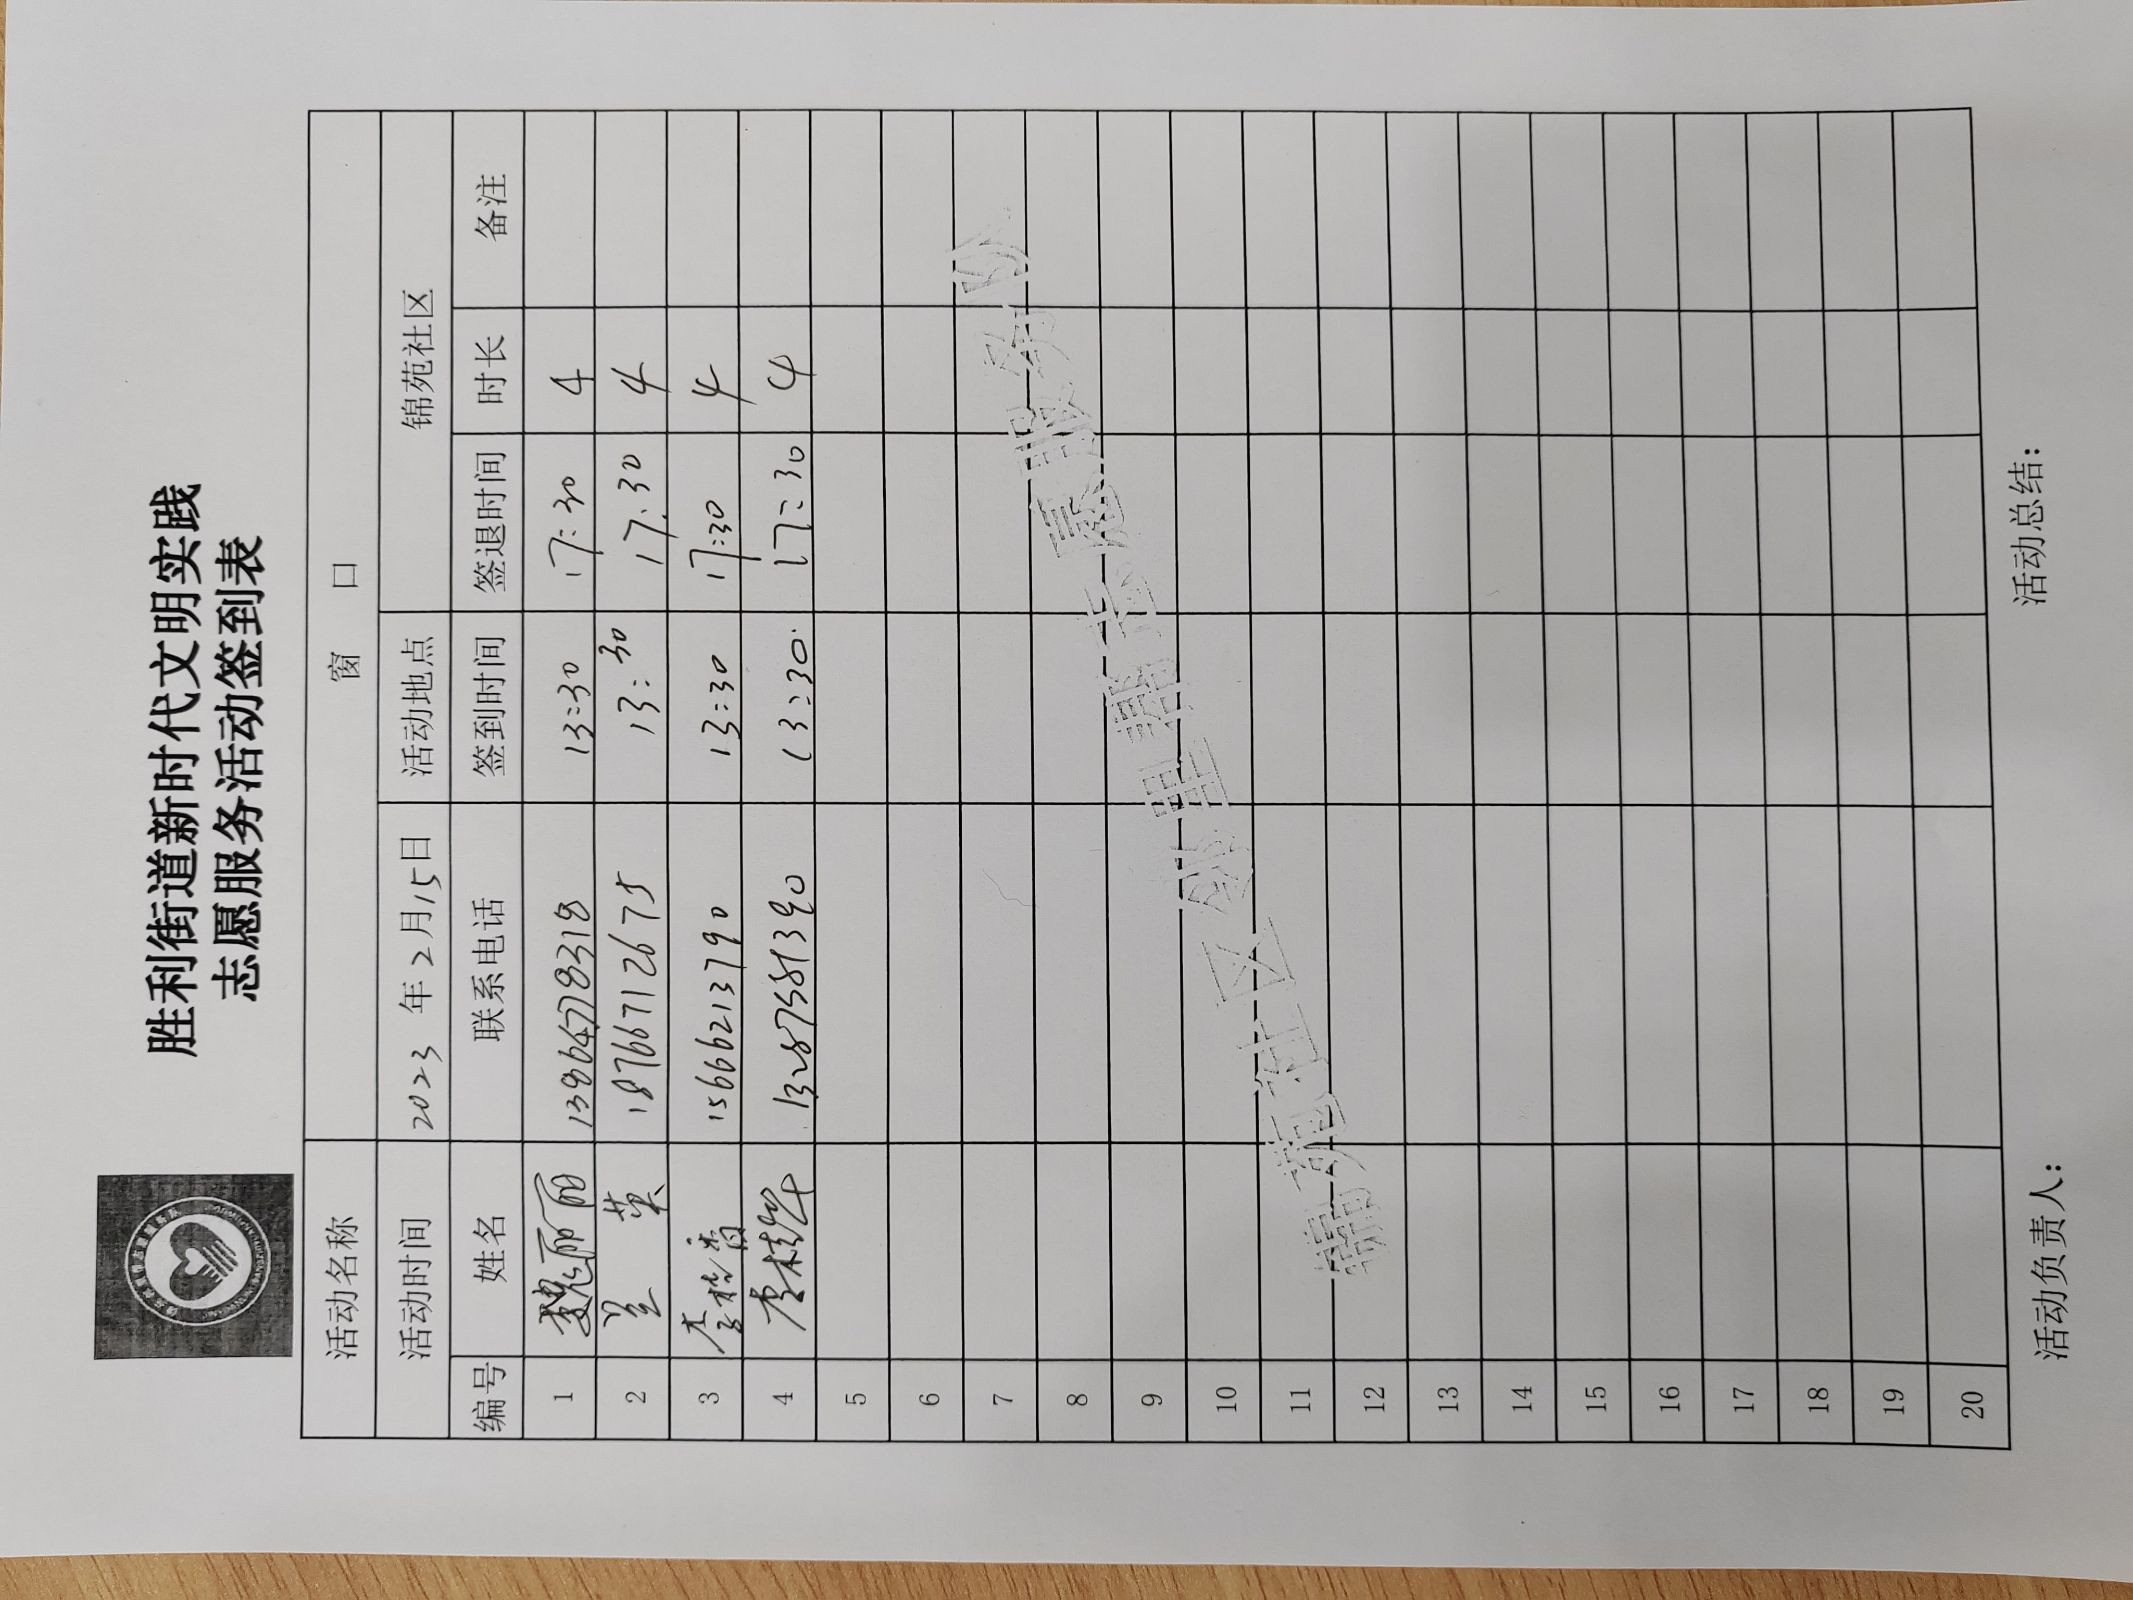 胜利街道新时代文明实践
志愿服务活动签到表
活动名称 窗 口
活动时间 2023 年 2 月 15 日 活动地点 锦苑社区
编号 姓名 联系电话 签到时间 签退时间 时长 备注
1 魏丽丽 13864778318 13:30 17:30 4
2 兰英 18766712675 13:30 17:30 4
3 李桂香 15666213790 13:30 17:30 4
4 李桂华 13287381390 13:30 17:30 4
5
6
7
8
9
10
11
12
13
14
15
16
17
18
19
20
锦苑社区邻里帮志愿服务队
活动负责人: 活动总结: